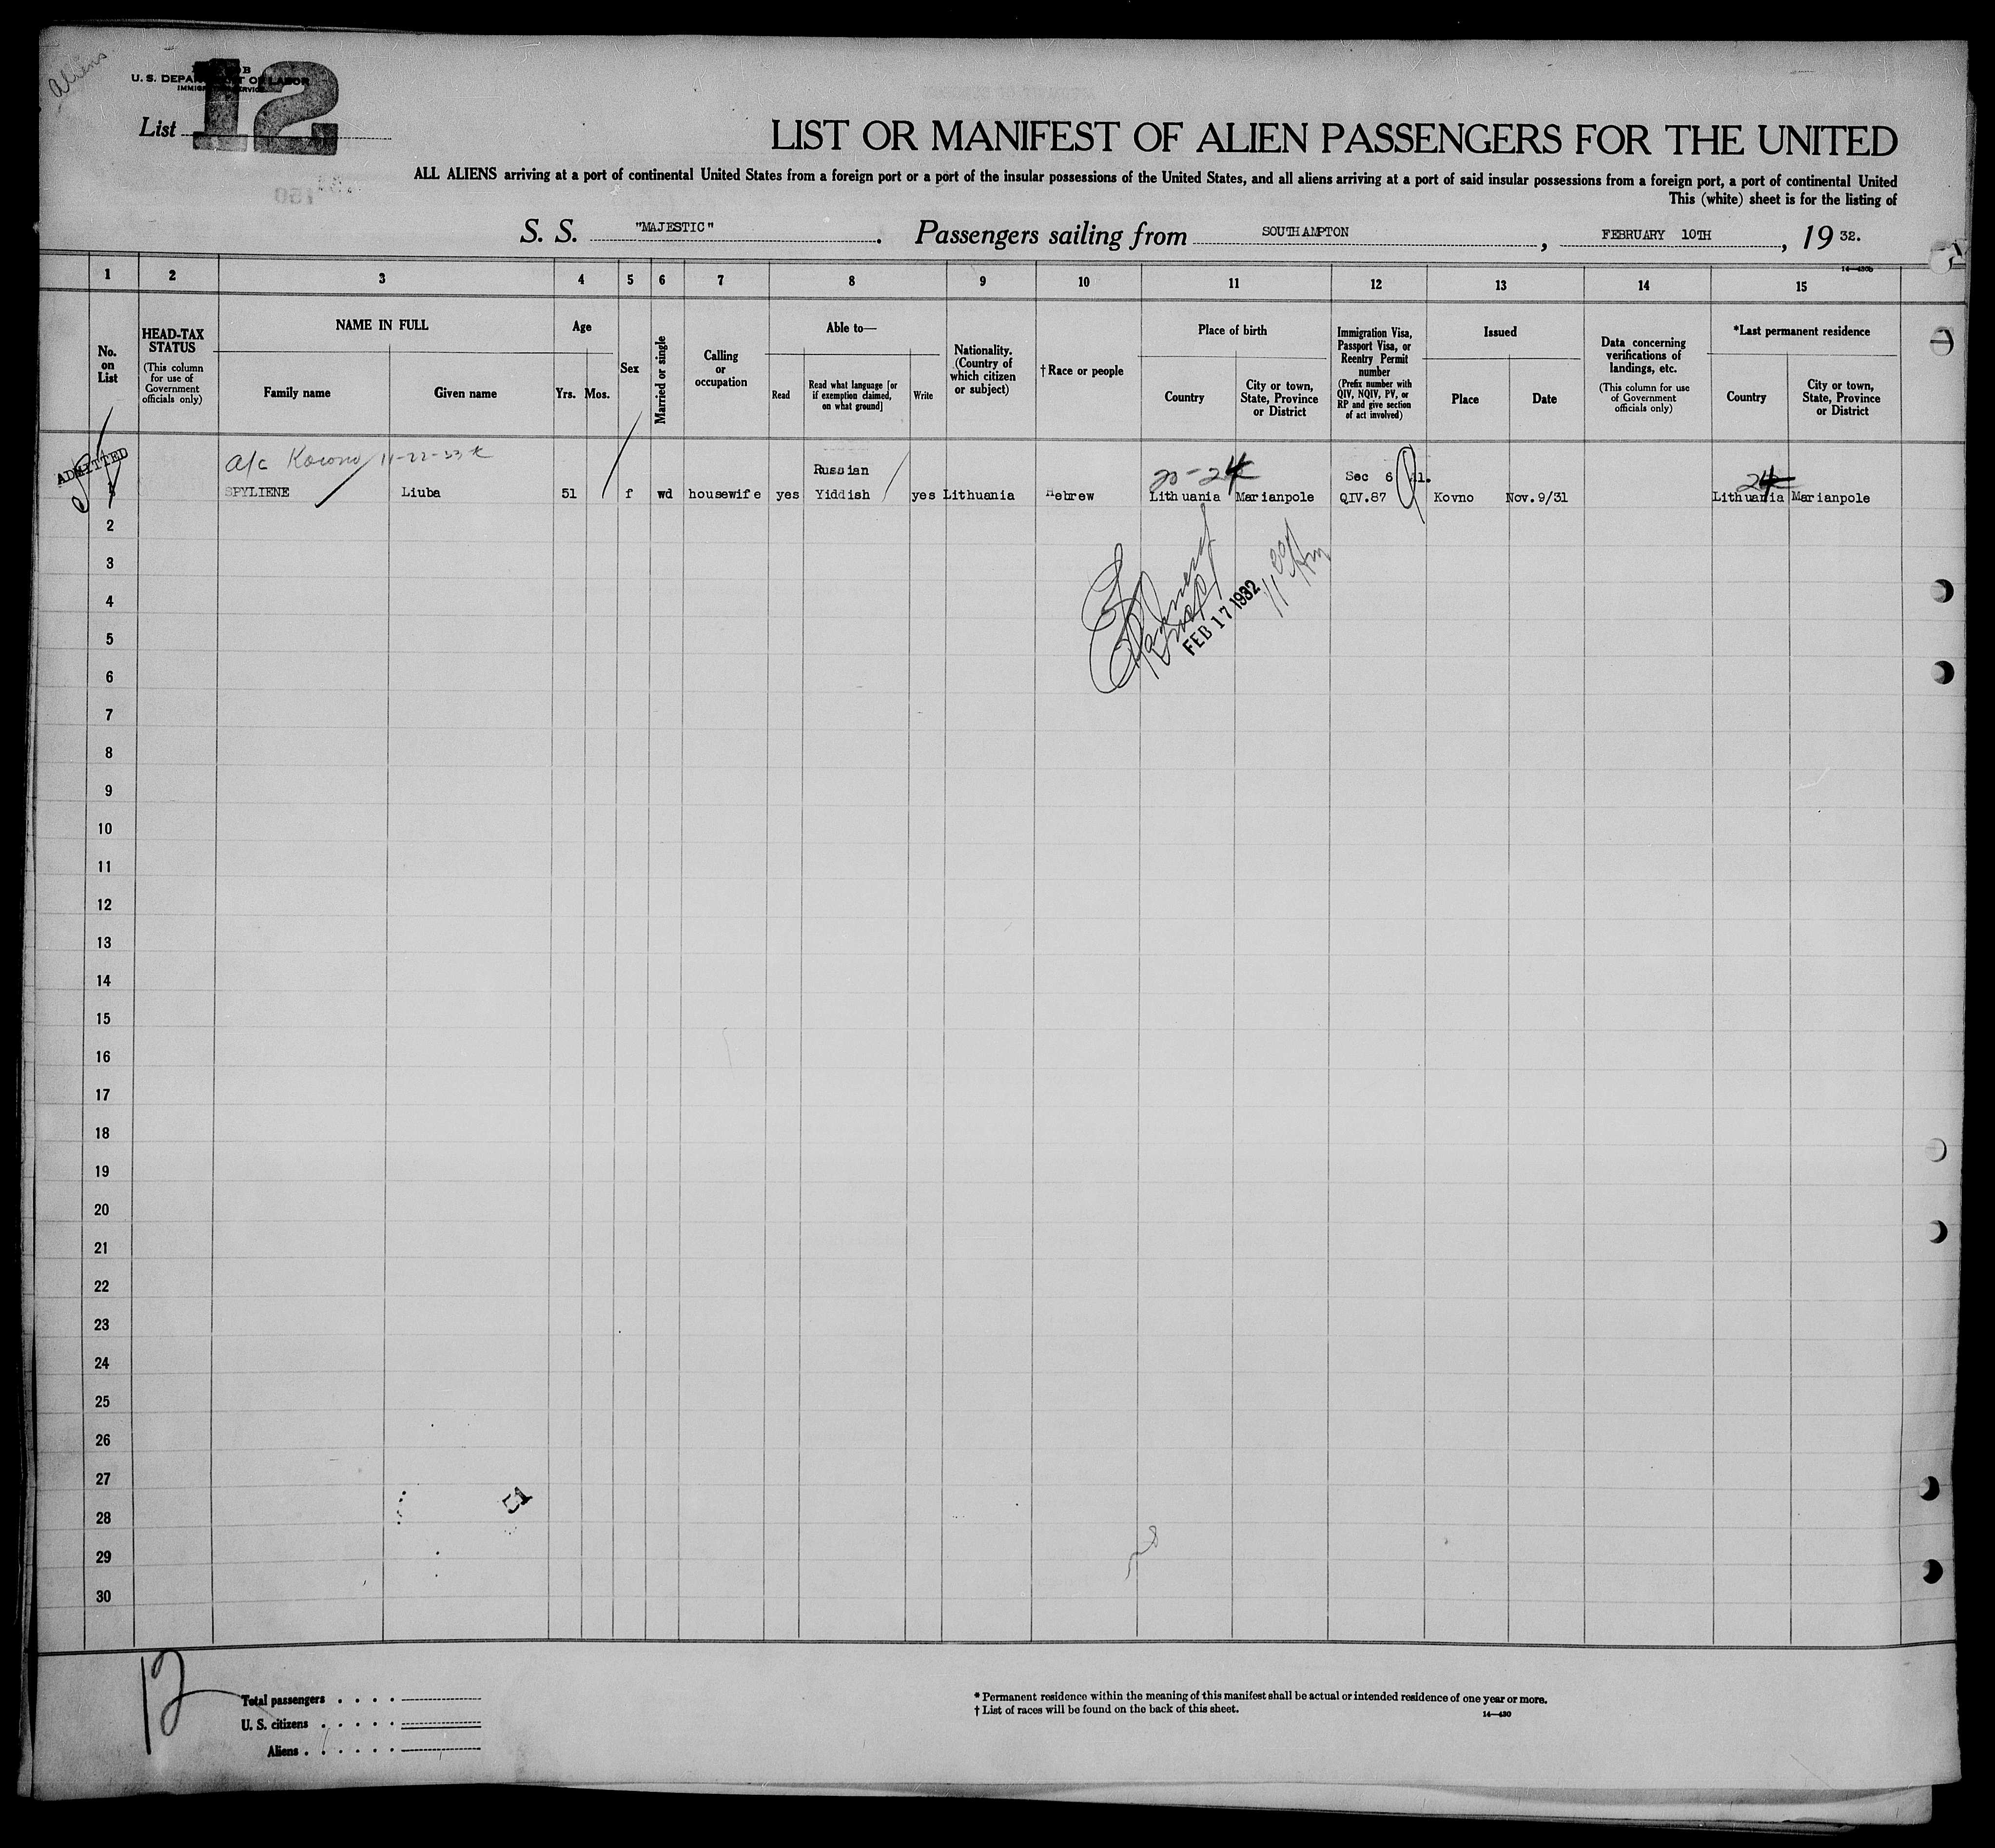 Aliens
U. S. DEPARTMENT OF LABOR
IMMIGRATION SERVICE
List 12
LIST OR MANIFEST OF ALIEN PASSENGERS FOR THE UNITED
ALL ALIENS arriving at a port of continental United States from a foreign port or a port of the insular possessions of the United States, and all aliens arriving at a port of said insular possessions from a foreign port, a port of continental United
This (white) sheet is for the listing of
S. S. "MAJESTIC". Passengers sailing from SOUTHAMPTON, FEBRUARY 10TH, 19 32.
14—430b
1 2 3 4 5 6 7 8 9 10 11 12 13 14 15
No. on List
HEAD-TAX STATUS
(This column for use of Government officials only)
NAME IN FULL
Family name Given name
Age
Yrs. Mos.
Sex
Married or single
Calling or occupation
Able to—
Read
Read what language [or if exemption claimed, on what ground]
Write
Nationality. (Country of which citizen or subject)
†Race or people
Place of birth
Country
City or town, State, Province or District
Immigration Visa, Passport Visa, or Reentry Permit number
(Prefix number with QIV, NQIV, PV, or RP and give section of act involved)
Issued
Place Date
Data concerning verifications of landings, etc.
(This column for use of Government officials only)
*Last permanent residence
Country
City or town, State, Province or District
ADMITTED
a/c 11-22-33
Russian 24 Sec 6 24
1 SPYLIENE Liuba 51 f wd housewife yes Yiddish yes Lithuania Hebrew Lithuania Marianpole QIV.87 Kovno Nov.9/31 Lithuania Marianpole
2
3
4
FEB 17 1932
5
6
7
8
9
10
11
12
13
14
15
16
17
18
19
20
21
22
23
24
25
26
27
28
29
30
12
Total passengers
U. S. citizens
Aliens
* Permanent residence within the meaning of this manifest shall be actual or intended residence of one year or more.
† List of races will be found on the back of this sheet.
14—430